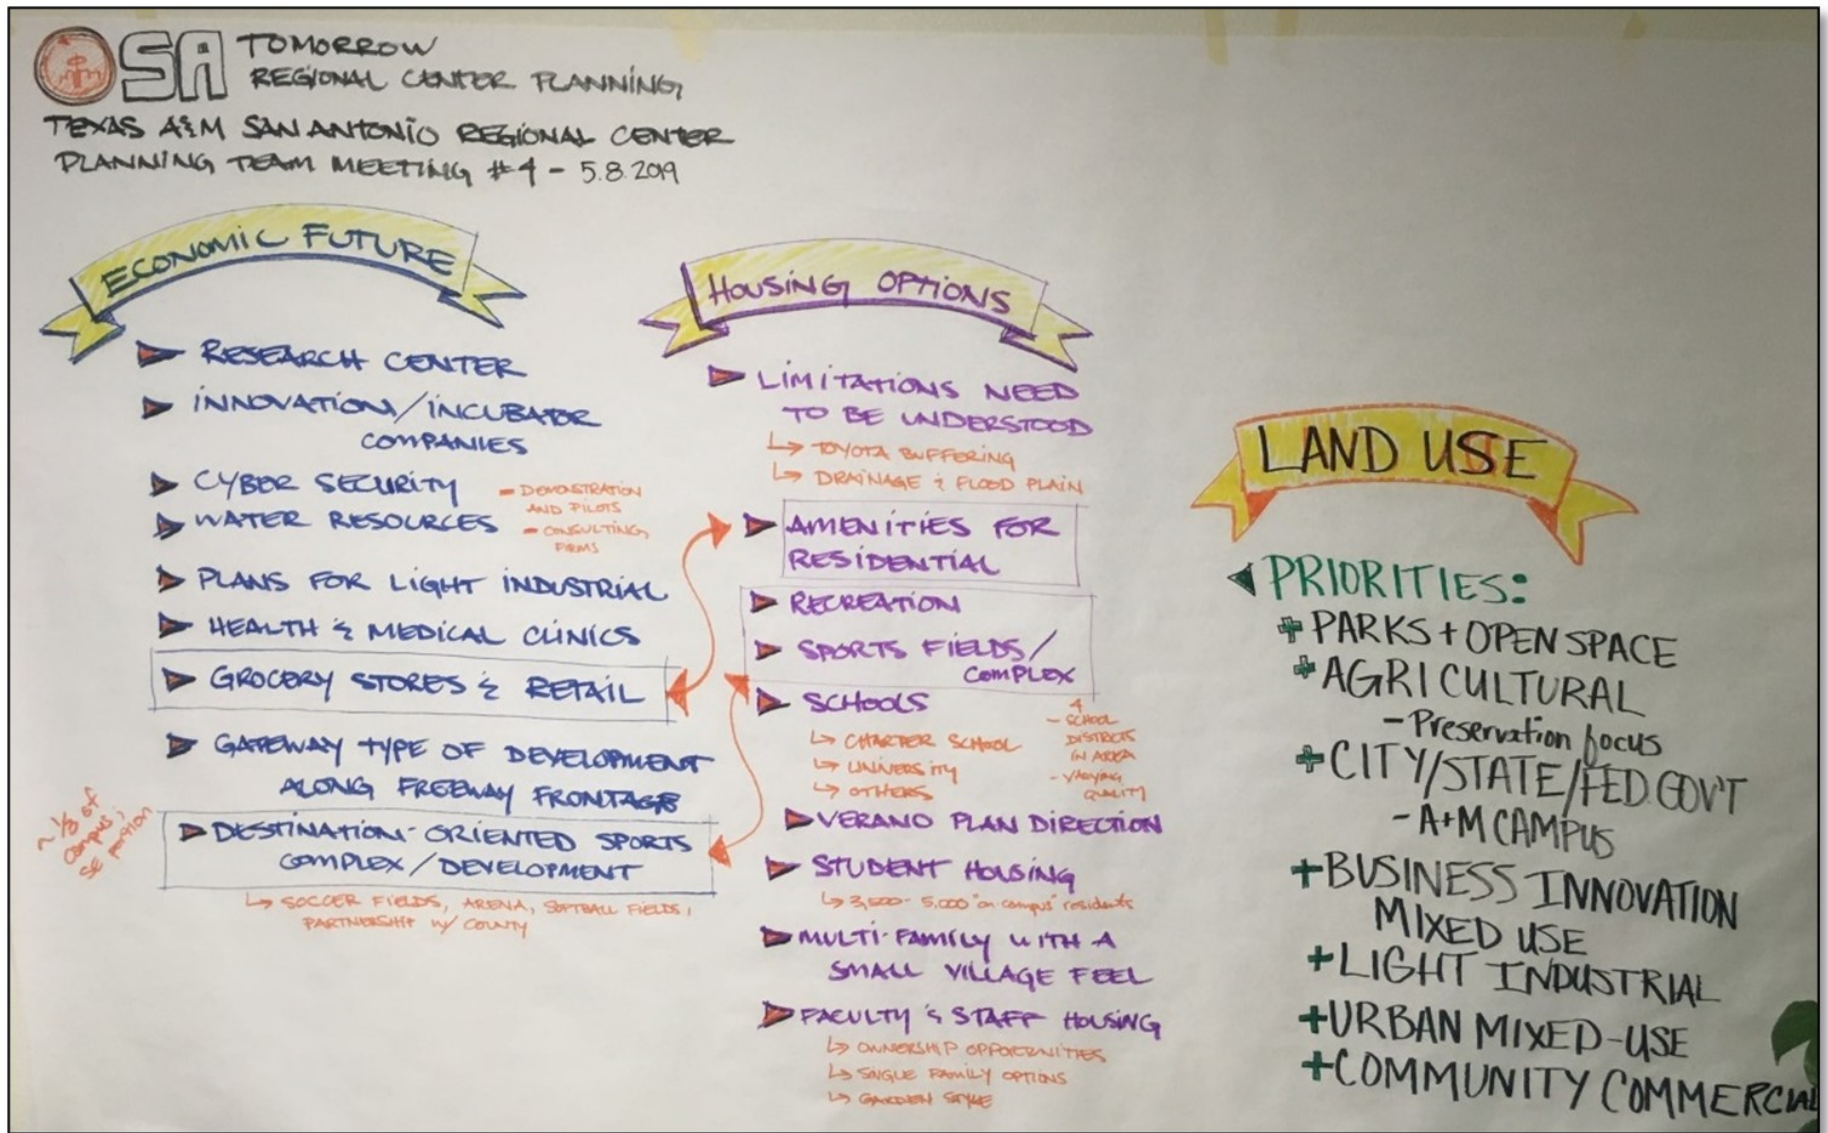 SA TOMORROW
REGIONAL CENTER PLANNING
TEXAS A&M SAN ANTONIO REGIONAL CENTER
PLANNING TEAM MEETING #4 - 5.8.2019
ECONOMIC FUTURE
RESEARCH CENTER
INNOVATION/INCUBATOR
COMPANIES
CYBER SECURITY
WATER RESOURCES
- DEMONSTRATION
AND PILOTS
- CONSULTING
FIRMS
PLANS FOR LIGHT INDUSTRIAL
HEALTH & MEDICAL CLINICS
GROCERY STORES & RETAIL
GATEWAY TYPE OF DEVELOPMENT
ALONG FREEWAY FRONTAGE
DESTINATION-ORIENTED SPORTS
COMPLEX/DEVELOPMENT
~ 1/3 of
campus;
SE portion
↳ SOCCER FIELDS, ARENA, SOFTBALL FIELDS,
PARTNERSHIP W/ COUNTY
HOUSING OPTIONS
LIMITATIONS NEED
TO BE UNDERSTOOD
↳ TOYOTA BUFFERING
↳ DRAINAGE & FLOOD PLAIN
AMENITIES FOR
RESIDENTIAL
RECREATION
SPORTS FIELDS/
COMPLEX
SCHOOLS
↳ CHARTER SCHOOL
↳ UNIVERSITY
↳ OTHERS
4
- SCHOOL
DISTRICTS
IN AREA
- VARYING
QUALITY
VERANO PLAN DIRECTION
STUDENT HOUSING
↳ 3,500 - 5,000 "on-campus" residents
MULTI-FAMILY WITH A
SMALL VILLAGE FEEL
FACULTY & STAFF HOUSING
↳ OWNERSHIP OPPORTUNITIES
↳ SINGLE FAMILY OPTIONS
↳ GARDEN STYLE
LAND USE
PRIORITIES:
+ PARKS + OPEN SPACE
+ AGRICULTURAL
- Preservation focus
+ CITY/STATE/FED. GOV'T
- A+M CAMPUS
+ BUSINESS INNOVATION
MIXED USE
+ LIGHT INDUSTRIAL
+ URBAN MIXED-USE
+ COMMUNITY COMMERCIAL